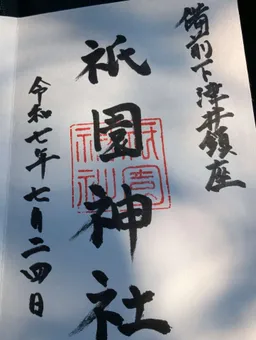 備前下津井鎮座
祇園神社
祇園
神社
令和七年七月二四日